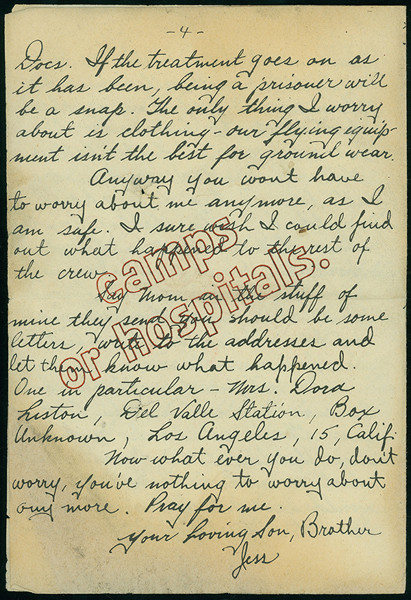 - 4 -
Docs. If the treatment goes on as
it has been, being a prisoner will
be a snap. The only thing I worry
about is clothing - our flying equip-
ment isn't the best for ground wear.
Anyway you wont have
to worry about me anymore, as I
am safe. I sure wish I could find
out what happened to the rest of
the crew.
camps
or hospitals.
Say Mom in the stuff of
mine they send you should be some
letters, write to the addresses and
let them know what happened.
One in particular - Mrs. Dora
Liston, Del Valle Station, Box
Unknown, Los Angeles, 15, Calif.
Now what ever you do, don't
worry, you've nothing to worry about
any more. Pray for me.
Your Loving Son, Brother
Jess